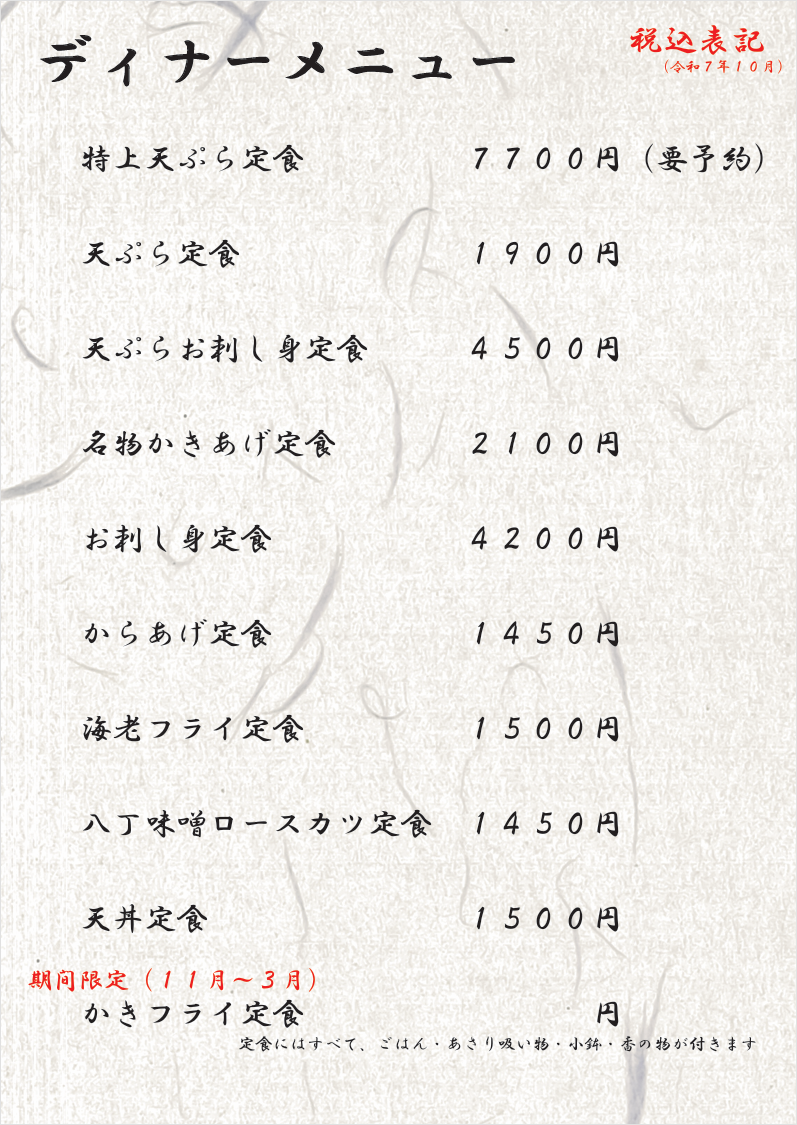 ディナーメニュー
税込表記
（令和７年１０月）
特上天ぷら定食　７７００円（要予約）
天ぷら定食　１９００円
天ぷらお刺し身定食　４５００円
名物かきあげ定食　２１００円
お刺し身定食　４２００円
からあげ定食　１４５０円
海老フライ定食　１５００円
八丁味噌ロースカツ定食　１４５０円
天丼定食　１５００円
期間限定（１１月～３月）
かきフライ定食　円
定食にはすべて、ごはん・あさり吸い物・小鉢・香の物が付きます